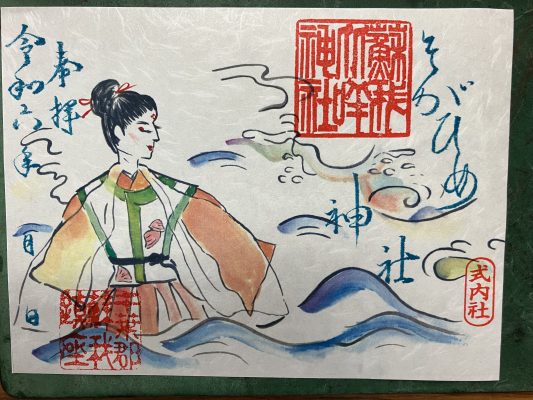 そがひめ
神社
蘇我
比咩
神社
式内社
奉拝
令和六年 月 日
千葉郡